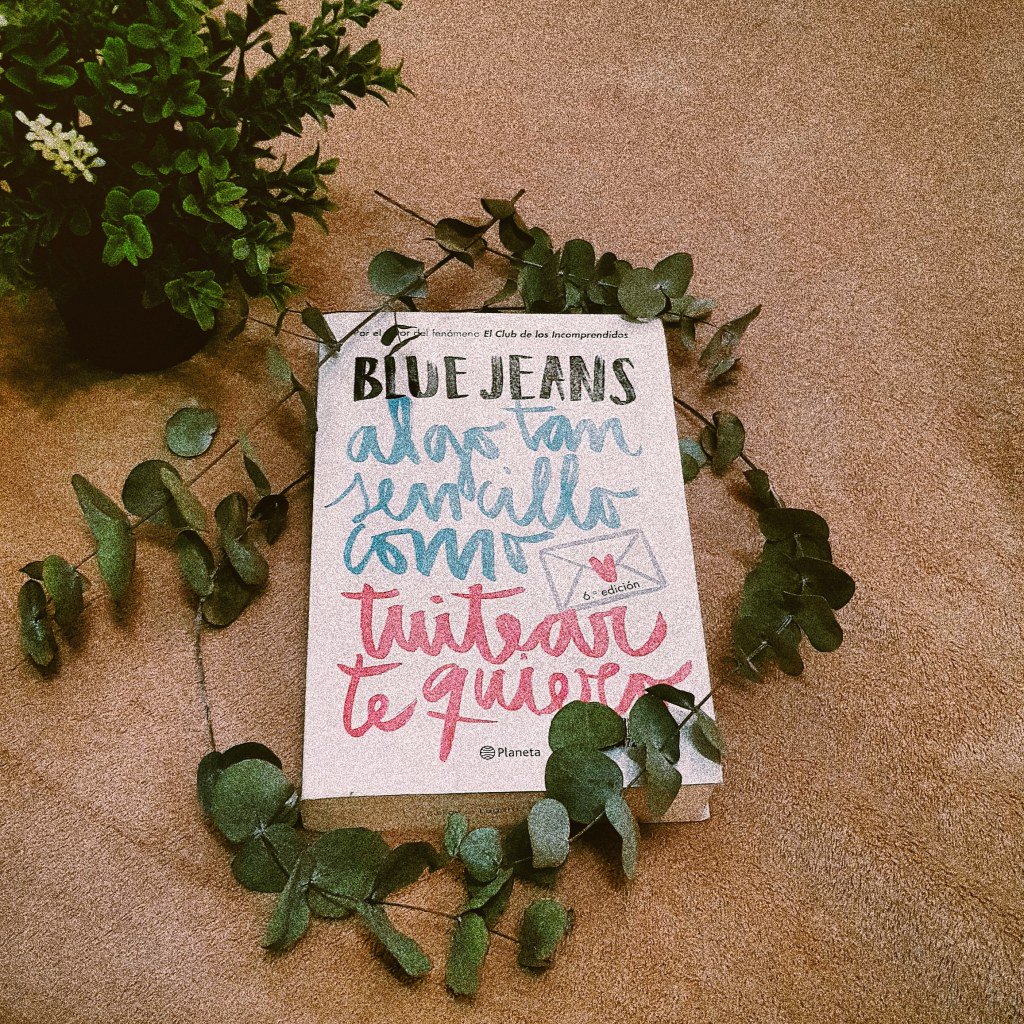 Por el del fenómeno El Club de los Incomprendidos
BLUE JEANS
algo tan
sencillo
como
6.ª edición
tuitear
te quiero
Planeta